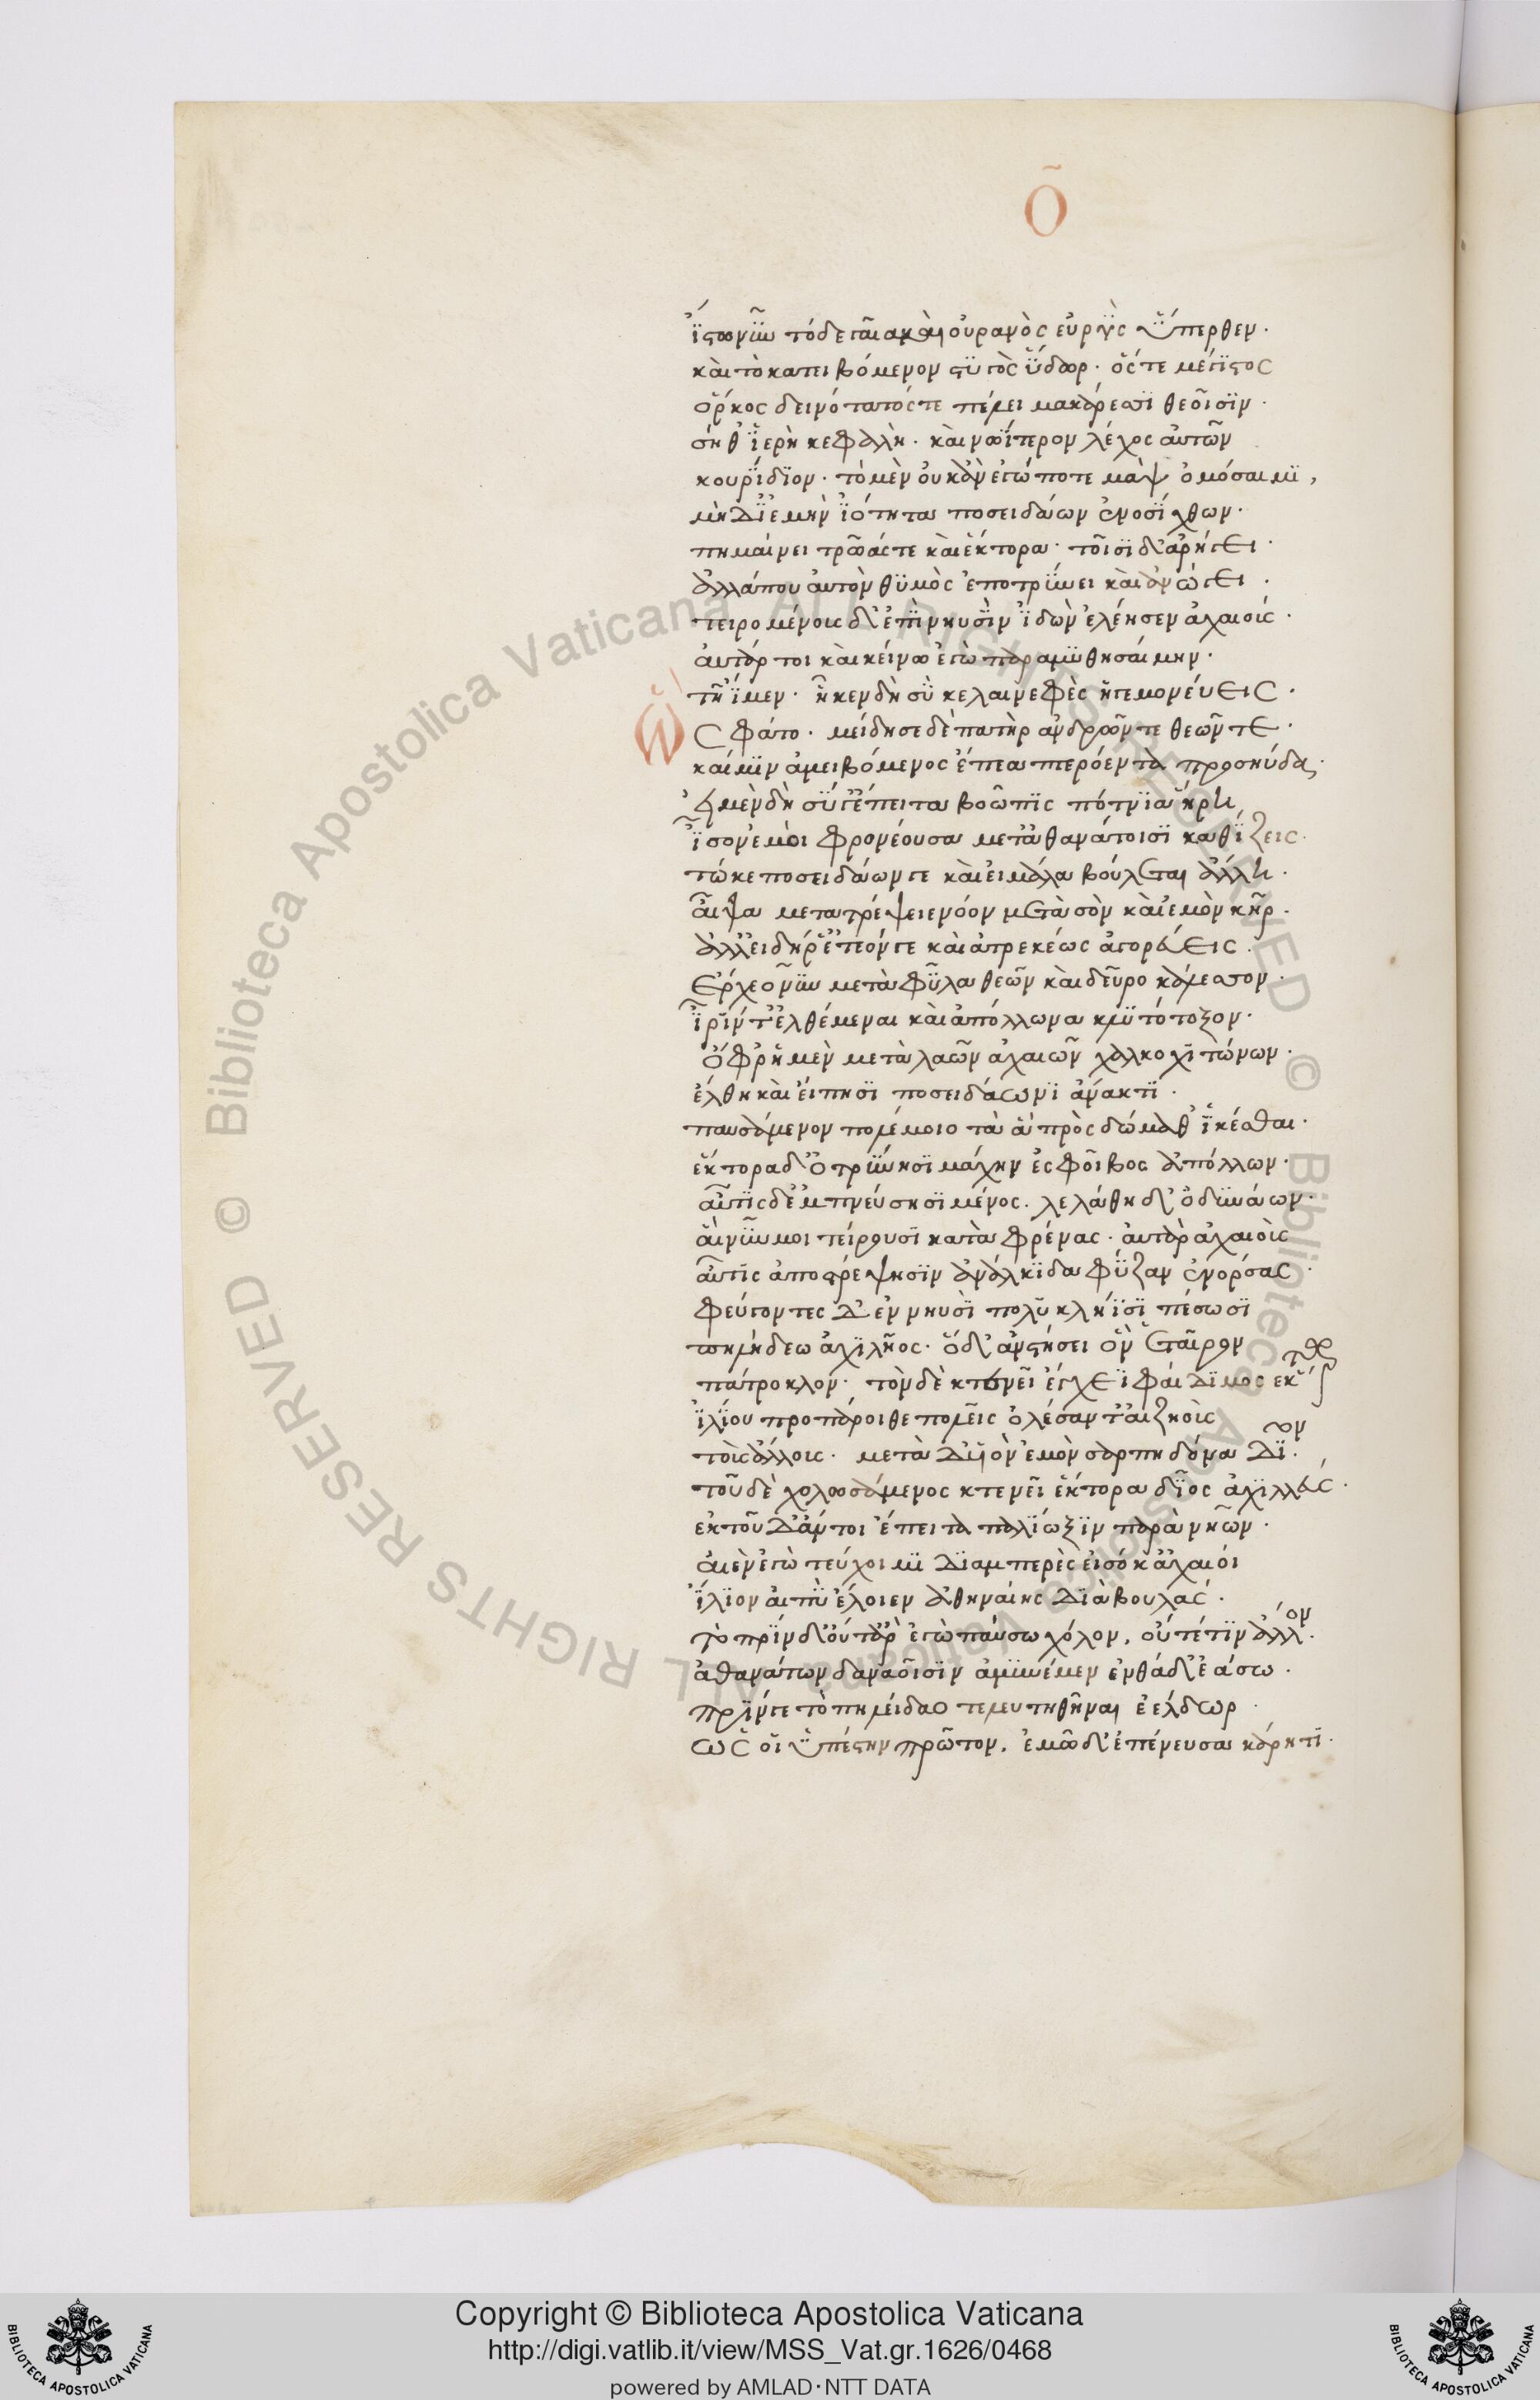 Ο
ἴστω νῦν τόδε γαῖα καὶ οὐρανὸς εὐρὺς ὕπερθεν·
καὶ τὸ κατειβόμενον στυγὸς ὕδωρ· ὅς τε μέγιστος
ὅρκος δεινότατός τε πέλει μακάρεσσι θεοῖσιν·
σή θ' ἱερὴ κεφαλὴ· καὶ νωΐτερον λέχος αὐτῶν
κουρίδιον· τὸ μὲν οὐκ ἂν ἐγώ ποτε μὰψ ὀμόσαιμι,
μὴ δι' ἐμὴν ἰότητα ποσειδάων ἐνοσίχθων·
πημαίνει τρῶάς τε καὶ ἕκτορα· τοῖσι δ' ἀρήγει·
ἀλλά που αὐτὸν θυμὸς ἐποτρύνει καὶ ἀνώγει·
τειρομένους δ' ἐπὶ νηυσὶν ἰδὼν ἐλέησεν ἀχαιούς·
αὐτάρ τοι καὶ κείνω ἐγὼ παραμυθησαίμην·
τῆ ἴμεν· ᾗ κεν δὴ σὺ κελαινεφὲς ἡγεμονεύεις·
Ὣς φάτο· μείδησε δὲ πατὴρ ἀνδρῶν τε θεῶν τε·
καί μιν ἀμειβόμενος ἔπεα πτερόεντα προσηύδα·
εἰ μὲν δὴ σύ γ' ἔπειτα βοῶπις πότνια ἥρη
ἶσον ἐμοὶ φρονέουσα μετ' ἀθανάτοισι καθίζεις·
τώ κε ποσειδάων γε καὶ εἰ μάλα βούλεται ἄλλη·
αἶψα μεταστρέψειε νόον μετὰ σὸν καὶ ἐμὸν κῆρ·
ἀλλ' εἰ δή ῥ' ἐτεόν γε καὶ ἀτρεκέως ἀγορεύεις·
ἔρχεο νῦν μετὰ φῦλα θεῶν καὶ δεῦρο κάλεσσον·
ἶρίν τ' ἐλθέμεναι καὶ ἀπόλλωνα κλυτότοξον·
ὄφρ' ἡ μὲν μετὰ λαῶν ἀχαιῶν χαλκοχιτώνων·
ἔλθη καὶ εἴπησι ποσειδάωνι ἄνακτι·
παυσάμενον πολέμοιο τὰ ἃ πρὸς δώμαθ' ἱκέσθαι·
ἕκτορα δ' ὀτρύνησι μάχην ἐς φοῖβος ἀπόλλων·
αὖτις δ' ἐμπνεύσησι μένος· λελάθη δ' ὀδυνάων·
αἳ νῦν μοι τείρουσι κατὰ φρένας· αὐτὰρ ἀχαιοὺς
αὖτις ἀποστρέψησιν ἀνάλκιδα φύζαν ἐνόρσας·
φεύγοντες δ' ἐν νηυσὶ πολυκλήϊσι πέσωσι
πηληϊάδεω ἀχιλῆος· ὅδ' ἀνστήσει ὃν ἑταῖρον
πάτροκλον· τὸν δὲ κτενεῖ ἔγχεϊ φαίδιμος ἕκτωρ
ἰλίου προπάροιθε πολεῖς ὀλέσαντ' αἰζηοὺς
τοὺς ἄλλους· μετὰ δ' υἱὸν ἐμὸν σαρπηδόνα δῖον·
τοῦ δὲ χολωσάμενος κτενεῖ ἕκτορα δῖος ἀχιλλεύς·
ἐκ τοῦ δ' ἄν τοι ἔπειτα παλίωξιν παρὰ νηῶν·
αἰὲν ἐγὼ τεύχοιμι διαμπερὲς εἰσόκ' ἀχαιοὶ
ἴλιον αἰπὺ ἕλοιεν ἀθηναίης διὰ βουλάς·
τὸ πρὶν δ' οὔτ' ἂρ ἐγὼ παύσω χόλον, οὔτέ τιν' ἄλλον·
ἀθανάτων δαναοῖσιν ἀμυνέμεν ἐνθάδ' ἐάσω·
πρίν γε τὸ πηλείδαο τελευτηθῆναι ἐέλδωρ·
ὥς οἱ ὑπέστην πρῶτον, ἐμῶ δ' ἐπένευσα κάρητι·
Copyright © Biblioteca Apostolica Vaticana
http://digi.vatlib.it/view/MSS_Vat.gr.1626/0468
powered by AMLAD·NTT DATA
BIBLIOTECA APOSTOLICA VATICANA
BIBLIOTECA APOSTOLICA VATICANA
© Biblioteca Apostolica Vaticana ALL RIGHTS RESERVED © Biblioteca Apostolica Vaticana ALL RIGHTS RESERVED